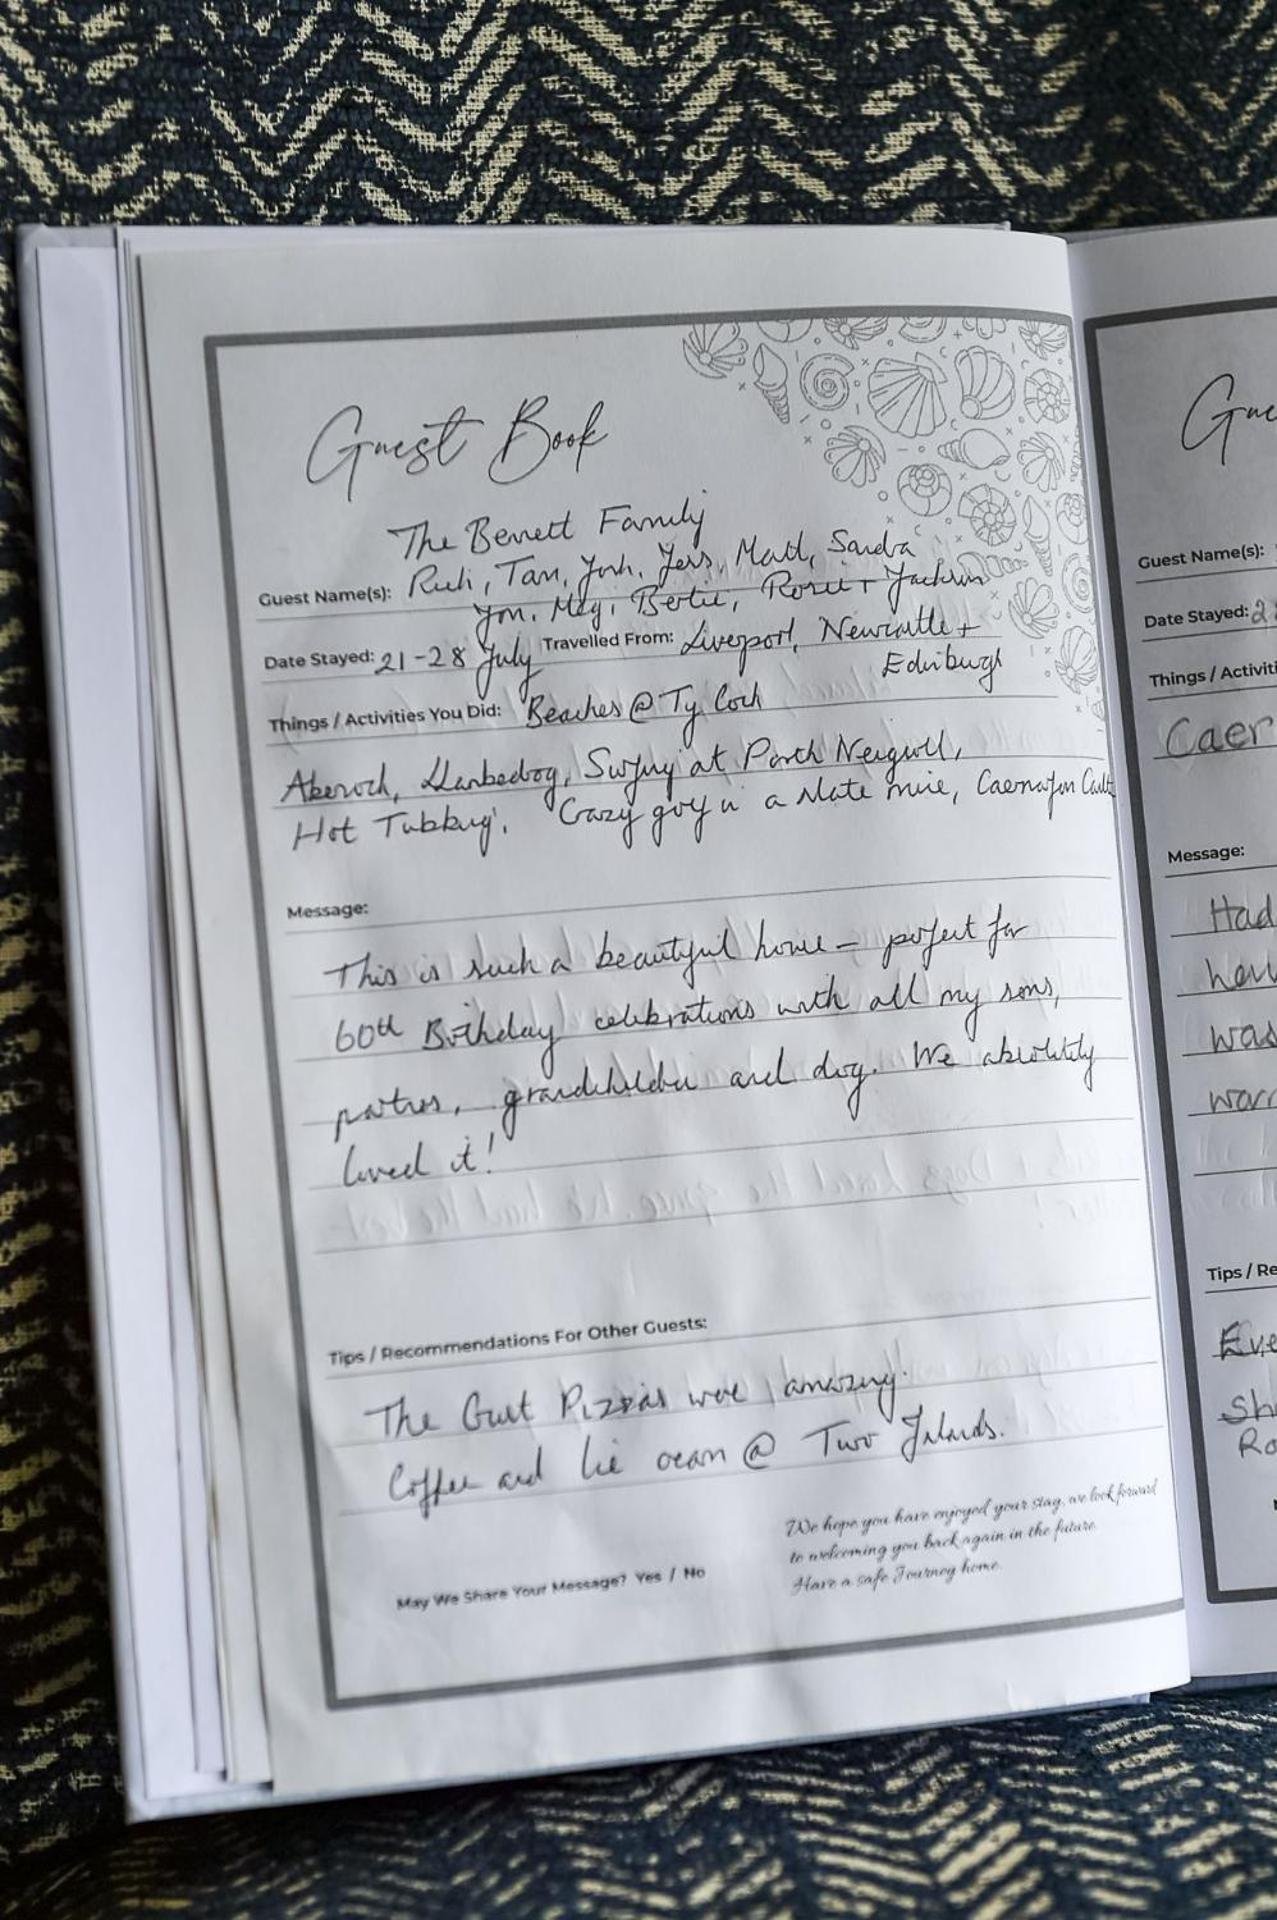 Guest Book
The Bennett Family
Guest Name(s): Rich, Tam, Josh, Jess, Matt, Sandra
Jon, Meg, Bertie, Rosie + Jackson
Date Stayed: 21-28 July Travelled From: Liverpool, Newcastle +
Edinburgh
Things / Activities You Did: Beaches @ Ty Coch
Abersoch, Llanbedrog, Surfing at Porth Neigwl,
Hot Tubbing, Crazy golf in a slate mine, Caernafon Castle
Message:
This is such a beautiful home - perfect for
60th Birthday celebrations with all my sons,
partners, grandchildren and dog. We absolutely
loved it!
Tips / Recommendations For Other Guests:
The Pizzas were amazing.
Coffee and Ice cream @ Two Islands.
May We Share Your Message? Yes / No
We hope you have enjoyed your stay, we look forward
to welcoming you back again in the future.
Have a safe Journey home.
Gue
Guest Name(s):
Date Stayed: 2
Things / Activiti
Caer
Message:
Had
was
Tips / Re
Eve
Sh
Ro